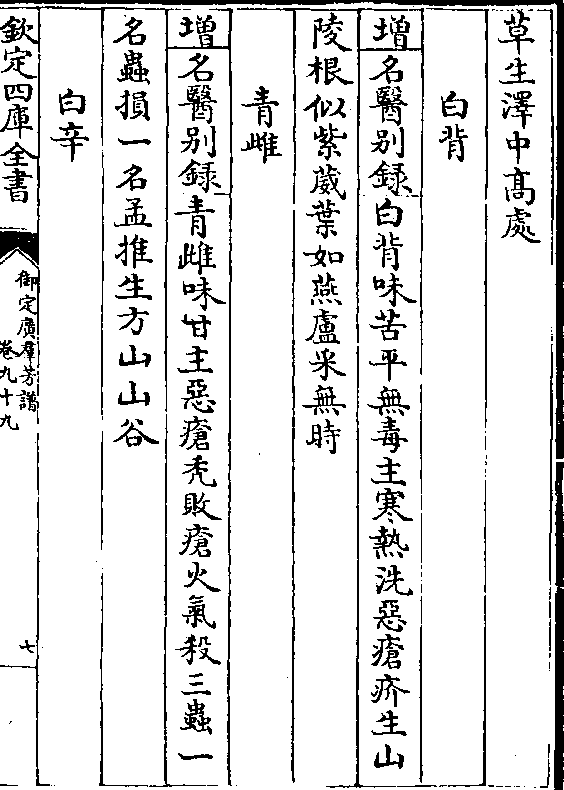 草生澤中髙處
白背
增名醫别録白背味苦平無毒主寒熱洗惡瘡疥生山
陵根似紫葳葉如燕盧采無時
青雌
增名醫别録青雌味甘主惡瘡秃敗瘡火氣殺三蟲一
名蟲損一名孟推生方山山谷
白辛
欽定四庫全書
御定廣羣芳譜
卷九十九
七